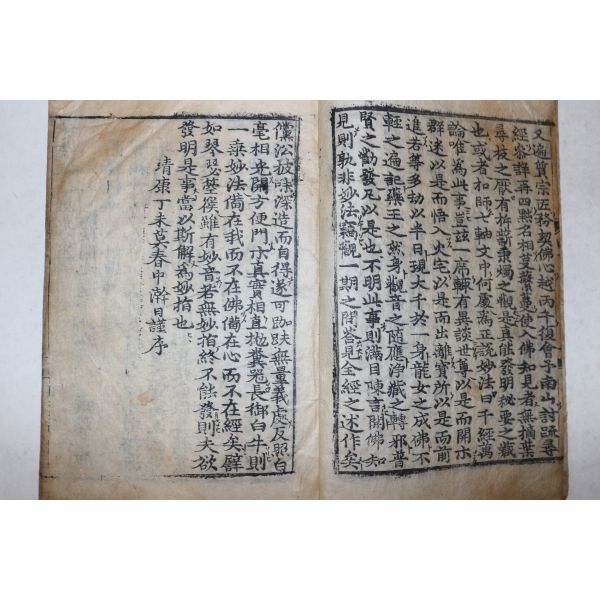 又遍質宗匠務契佛心越丙午復會于南山討語尋
經叅詳再四黜名相蔓使入佛知見者無摘葉
尋枝之厭有析薪秉燭之觀是真能發明秘要之藏
也或者扣師七軸文中何處爲正說妙法曰千經萬
論唯爲此事豈茲一席輒有異談世尊以是而開示
群迷以是而悟入火宅以是而出離寶所以是而前
進若等多劫以半日現大千於一身龍女之成佛不
輕之遍記藥王之然身觀音之隨應淨藏之轉邪普
賢之勸發凡以是也不明此事則滿目陳言開佛知
見則孰非妙法竊觀一期之問答見全經之述作矣
儻訟披味深造而自得遂可跏趺無量義處反照白
毫相光闢方便門示真實相直抛糞器長御白牛則
一乘妙法備在我而不在佛備在心而不在經矣譬
如琴瑟箜篌雖有妙音若無妙指終不能發則夫欲
發明是事當以斯解爲妙指也
靖康丁未莫春中澣日謹序